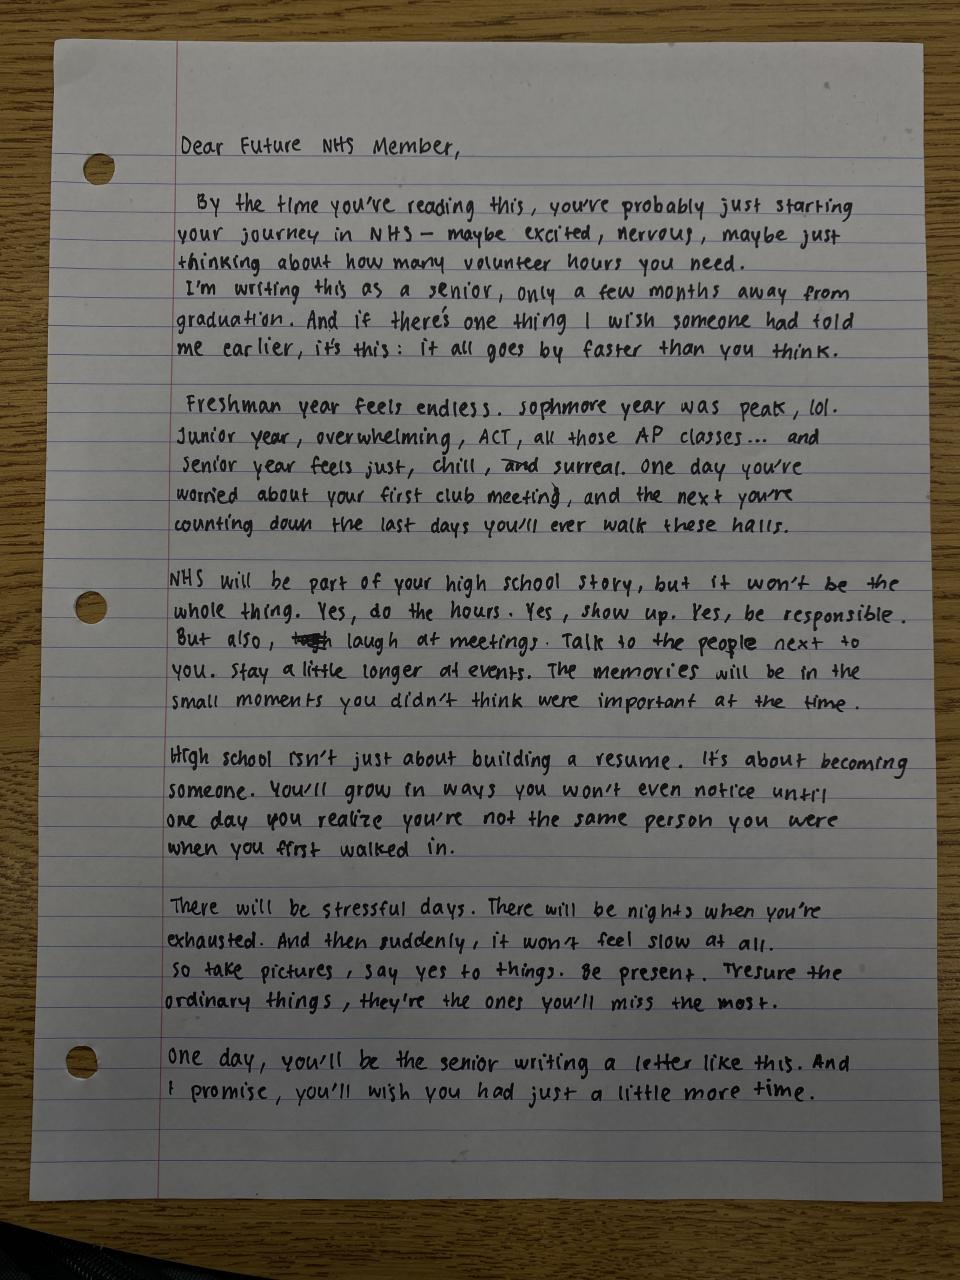 Dear Future NHS Member,
By the time you've reading this, you've probably just starting
your journey in NHS – maybe excited, nervous, maybe just
thinking about how many volunteer hours you need.
I'm writing this as a senior, only a few months away from
graduation. And if there's one thing I wish someone had told
me earlier, it's this: it all goes by faster than you think.
Freshman year feels endless. Sophmore year was peak, lol.
Junior year, overwhelming, ACT, all those AP classes... and
senior year feels just, chill, and surreal. One day you're
worried about your first club meeting, and the next you're
counting down the last days you'll ever walk these halls.
NHS will be part of your high school story, but it won't be the
whole thing. Yes, do the hours. Yes, show up. Yes, be responsible.
But also, laugh at meetings. Talk to the people next to
you. Stay a little longer at events. The memories will be in the
small moments you didn't think were important at the time.
High school isn't just about building a resume. It's about becoming
someone. You'll grow in ways you won't even notice until
one day you realize you're not the same person you were
when you first walked in.
There will be stressful days. There will be nights when you're
exhausted. And then suddenly, it won't feel slow at all.
So take pictures, say yes to things. Be present. Tresure the
ordinary things, they're the ones you'll miss the most.
One day, you'll be the senior writing a letter like this. And
I promise, you'll wish you had just a little more time.